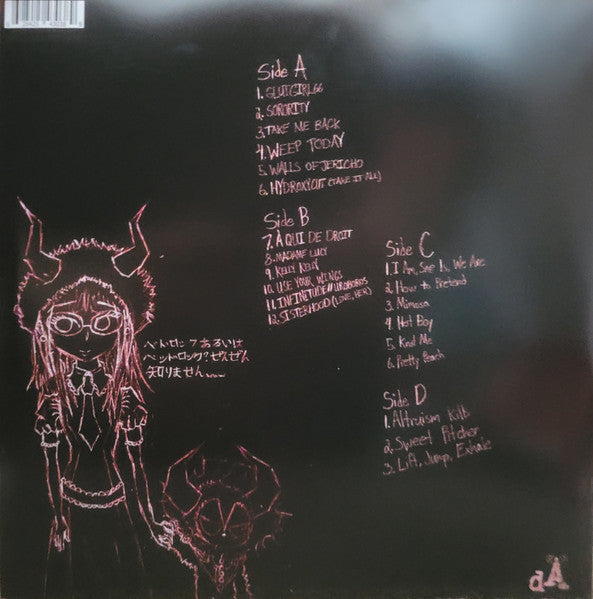 Side A
1. SLUTGIRL66
2. SORORITY
3. TAKE ME BACK
4. WEEP TODAY
5. WALLS OF JERICHO
6. HYDROXYCUT (TAKE IT ALL)
Side B
7. À QUI DE DROIT
8. MADAME LUCY
9. KELLY KELLY
10. USE YOUR WINGS
11. INFINITUDE//UROBOROS
12. SISTERHOOD (LOVE, HER)
Side C
1. I Am, She Is, We Are
2. How to Pretend
3. Mimosa
4. Hot Boy
5. Knd Me
6. Pretty Beach
Side D
1. Altruism Kills
2. Sweet Pitcher
3. Lift, Jump, Exhale
ペトロック？あるいは
ペットロック？ぜんぜん
知りません
dA